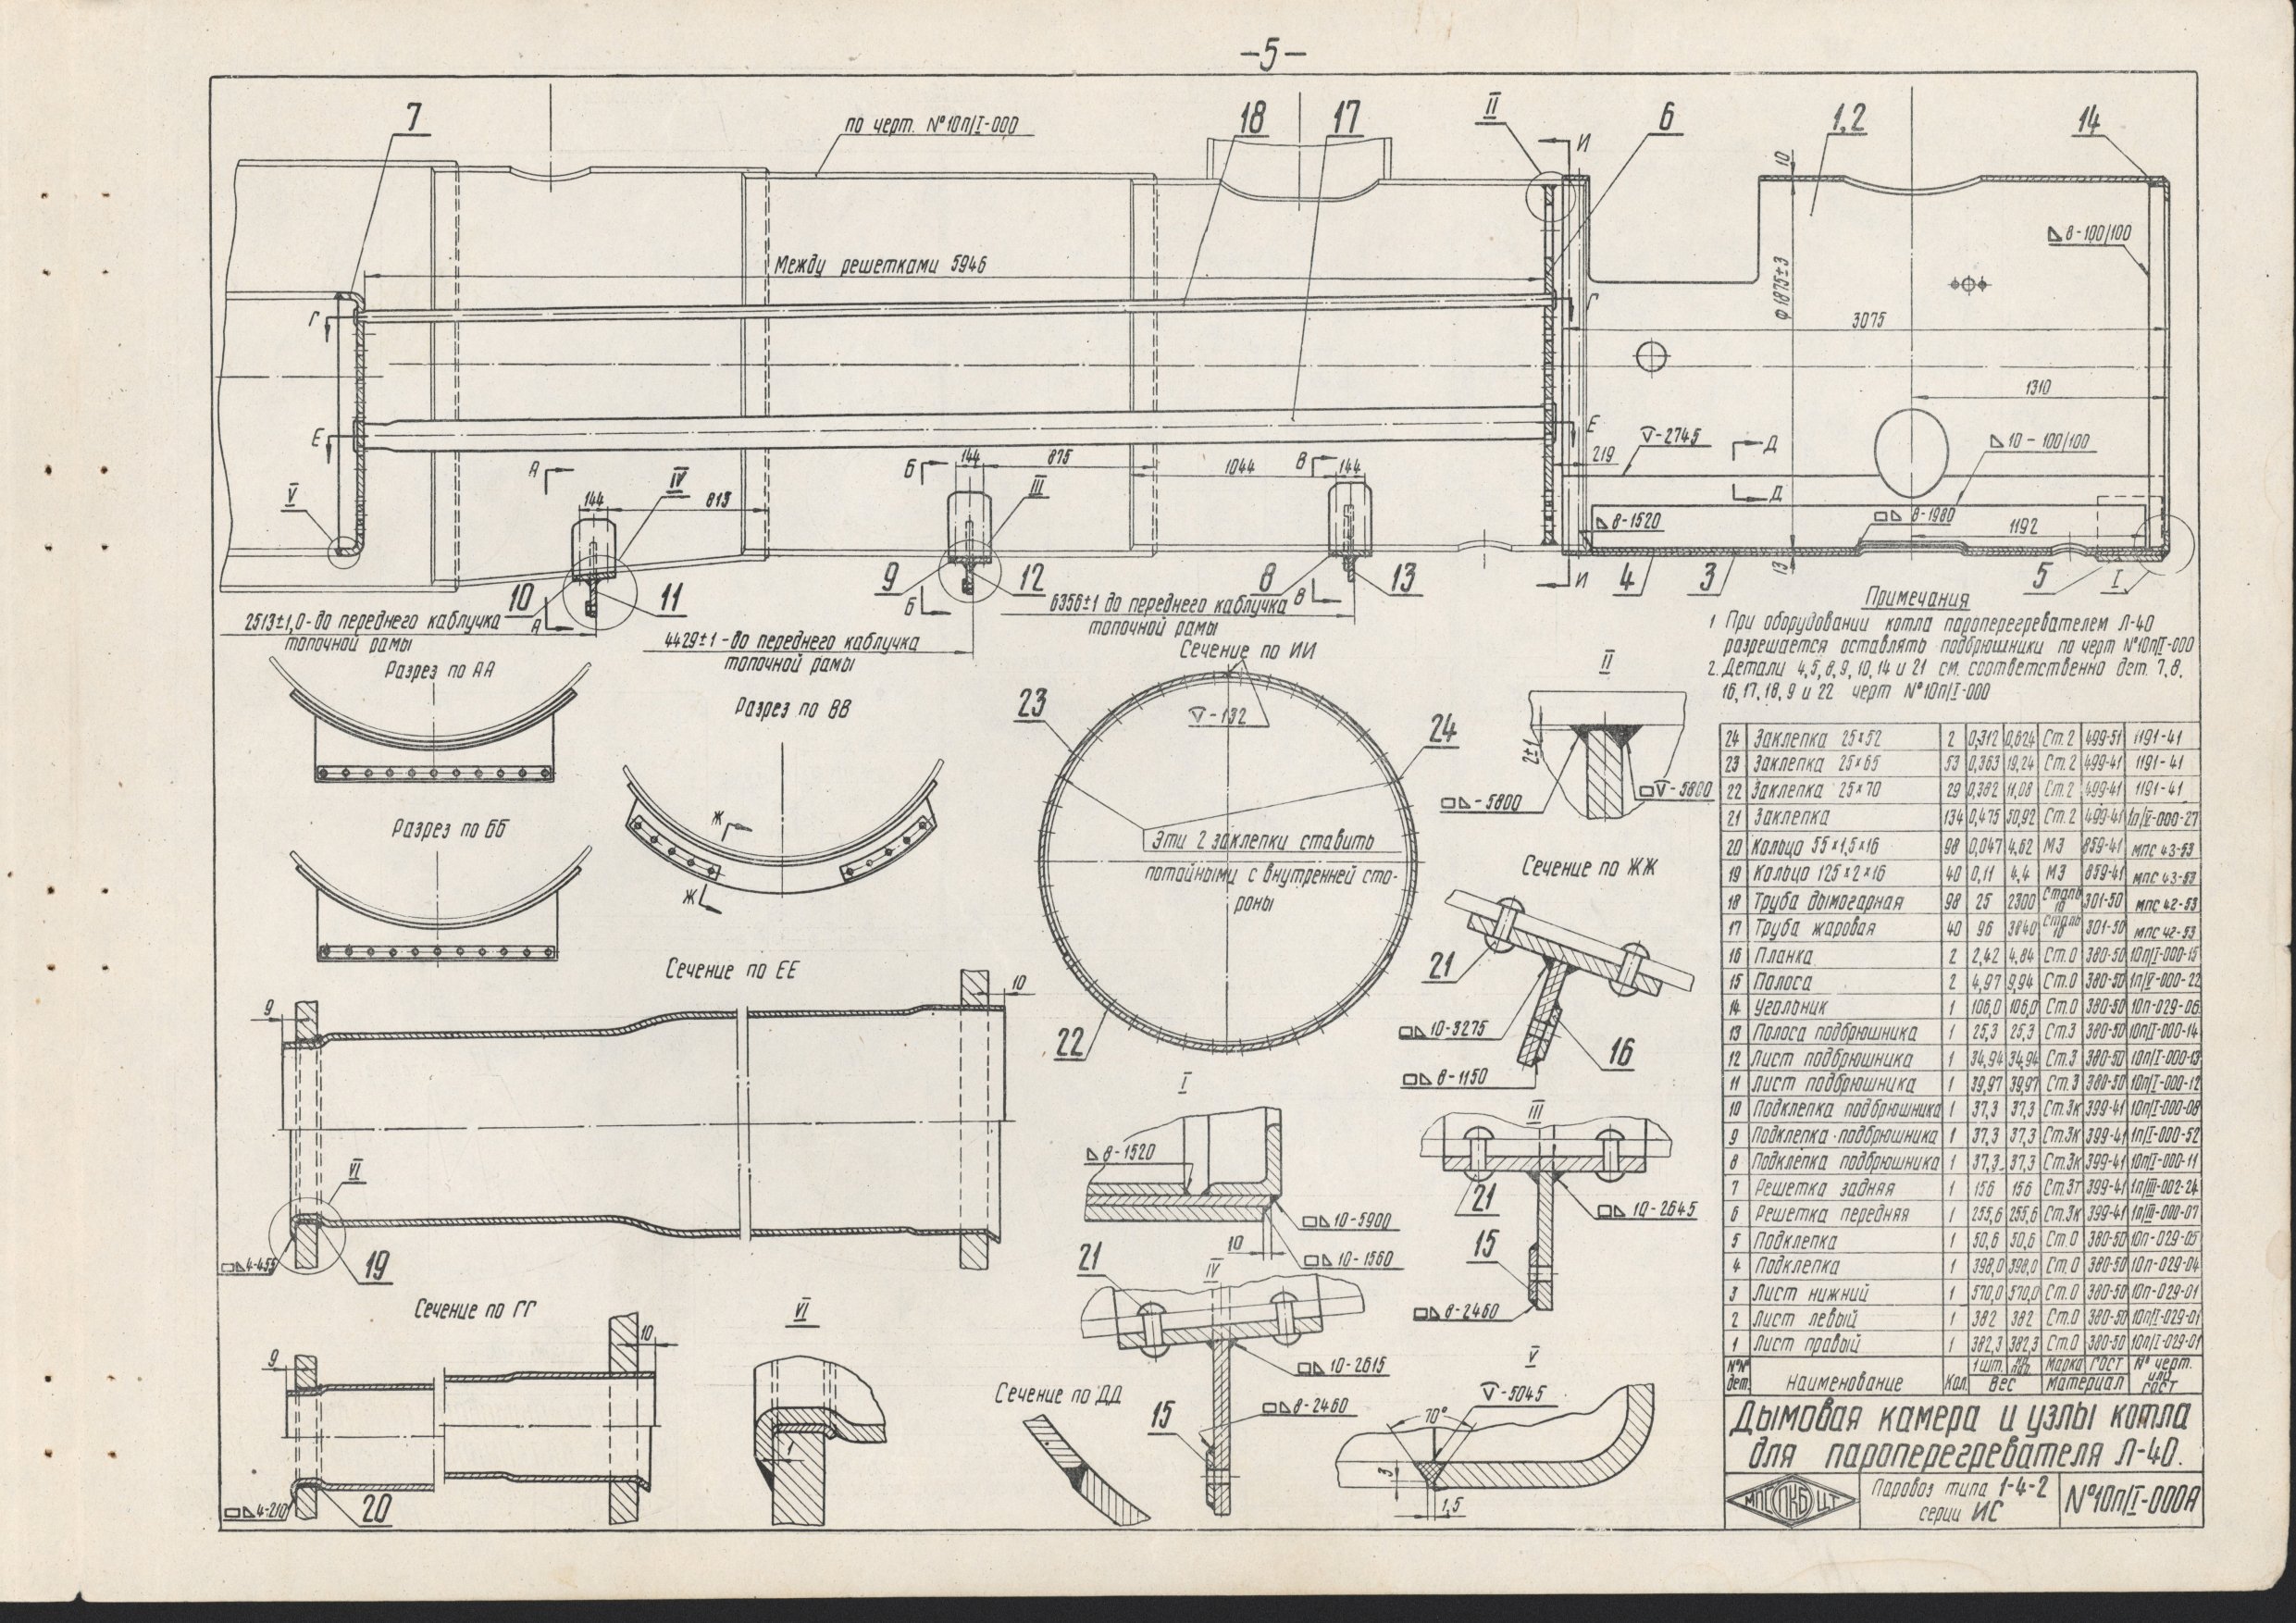 -5-
7
по черт. №10п/I-000
18
17
II
И
6
1,2
14
10
8-100/100
Между решетками 5946
φ1875±3
3075
Г
Г
1310
Е
Е
V-2745
Д
10-100/100
219
А
IV
Б
144
875
III
1044
В
144
V
144
813
Д
8-1520
8-1980
1192
10
А
11
9
12
Б
8
13
В
И
4
3
13
5
I
2513±1,0-до переднего каблучка
топочной рамы
4429±1-до переднего каблучка
топочной рамы
6356±1 до переднего каблучка
топочной рамы
Примечания
1 При оборудовании котла пароперегревателем Л-40
разрешается оставлять подбрюшники по черт №10п/I-000
2. Детали 4,5,8,9,10,14 и 21 см. соответственно дет. 7,8,
16,17,18,9 и 22 черт №10п/I-000
Разрез по АА
Разрез по ВВ
Разрез по ББ
Ж
Ж
Сечение по ИИ
V-132
23
24
22
Эти 2 заклепки ставить
потайными с внутренней сто-
роны
II
2±1
-5800
V-5800
Сечение по ЖЖ
21
10-3275
8-1150
16
Сечение по ЕЕ
9
10
VI
4-455
19
I
8-1520
10-5900
10
10-1560
III
21
10-2645
15
8-2460
IV
21
10-2615
15
8-2460
Сечение по ГГ
9
10
4-210
20
VI
1
Сечение по ДД
V
V-5045
70°
3
1,5
24 Заклепка 25×52 2 0,312 0,624 Ст.2 499-51 1191-41
23 Заклепка 25×65 53 0,363 19,24 Ст.2 499-41 1191-41
22 Заклепка 25×70 29 0,382 11,08 Ст.2 499-41 1191-41
21 Заклепка 134 0,475 50,92 Ст.2 499-41 1п/V-000-27
20 Кольцо 55×1,5×16 98 0,047 4,62 М3 859-41 МПС 43-53
19 Кольцо 125×2×16 40 0,11 4,4 М3 859-41 МПС 43-53
18 Труба дымогарная 98 25 2300 Сталь 10 301-50 МПС 42-53
17 Труба жаровая 40 96 3840 Сталь 10 301-50 МПС 42-53
16 Планка 2 2,42 4,84 Ст.0 380-50 10п/I-000-15
15 Полоса 2 4,97 9,94 Ст.0 380-50 1п/V-000-22
14 Угольник 1 106,0 106,0 Ст.0 380-50 10п-029-06
13 Полоса подбрюшника 1 25,3 25,3 Ст.3 380-50 10п/I-000-14
12 Лист подбрюшника 1 34,94 34,94 Ст.3 380-50 10п/I-000-13
11 Лист подбрюшника 1 39,97 39,97 Ст.3 380-50 10п/I-000-12
10 Подклепка подбрюшника 1 37,3 37,3 Ст.3к 399-41 10п/I-000-08
9 Подклепка подбрюшника 1 37,3 37,3 Ст.3к 399-41 1п/I-000-52
8 Подклепка подбрюшника 1 37,3 37,3 Ст.3к 399-41 10п/I-000-11
7 Решетка задняя 1 156 156 Ст.3т 399-41 1п/III-002-24
6 Решетка передняя 1 255,6 255,6 Ст.3к 399-41 1п/III-000-07
5 Подклепка 1 50,6 50,6 Ст.0 380-50 10п-029-05
4 Подклепка 1 398,0 398,0 Ст.0 380-50 10п-029-04
3 Лист нижний 1 570,0 570,0 Ст.0 380-50 10п-029-01
2 Лист левый 1 382 382 Ст.0 380-50 10п/I-029-01
1 Лист правый 1 382,3 382,3 Ст.0 380-50 10п/I-029-01
№№ дет. Наименование Кол. 1 шт. Вес Марка ГОСТ Материал № черт. или ГОСТ
Дымовая камера и узлы котла
для пароперегревателя Л-40.
МПС ПКБ ЦТ
Паровоз типа 1-4-2
серии ИС
№10п/I-000А